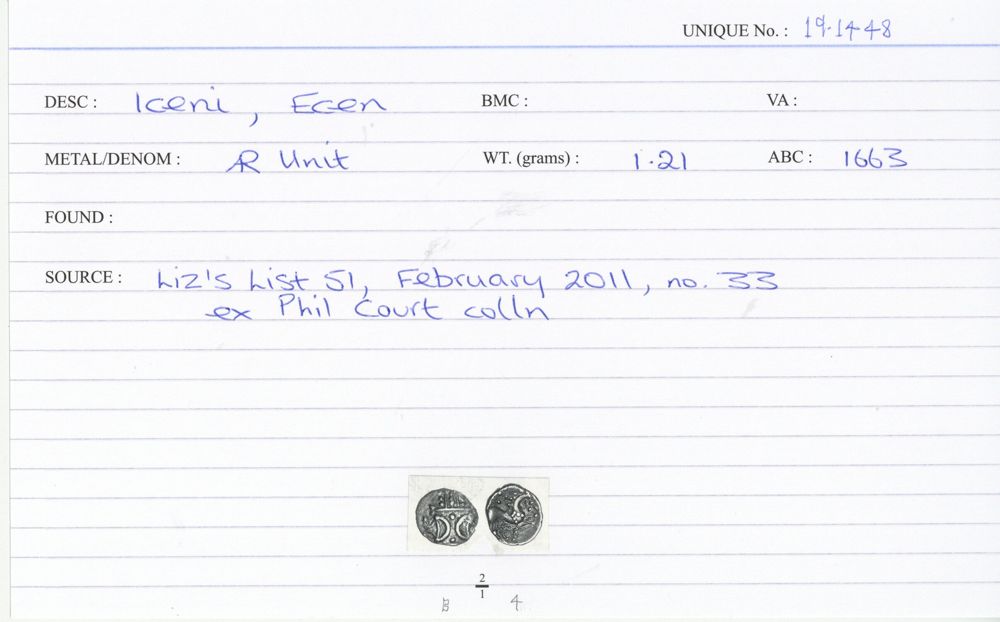 UNIQUE No. : 19.1448
DESC : Iceni, Ecen BMC : VA :
METAL/DENOM : AR Unit WT. (grams) : 1.21 ABC : 1663
FOUND :
SOURCE : Liz's List 51, February 2011, no. 33
ex Phil Court colln
2
1
B 4